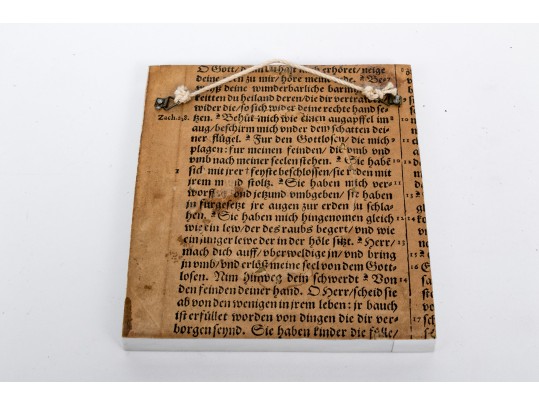 O Gott/ du hast mich erhöret/ neige
deine oren zu mir/ höre meine
deine wunderbarliche
du heiland deren/ die dir vertrauen
wider die/ so sich wider deine rechte hand se-
Zach. 2,8. tzen. Behüt mich wie einen augapffel im
aug/ beschirm mich vnder dem schatten dei-
ner flügel. Für den Gottlosen/ die mich
plagen: für meinen feinden/ die vmb vnd
vmb nach meiner seelen stehen. Sie habē
sich mit jrer feyste beschlossen/ sie reden mit
jrem mund stoltz. Sie haben mich ver-
worffen vnd jetzund vmbgeben/ sie haben
in fürgesetzt jre augen zur erden zu schla-
hen. Sie haben mich hingenomen gleich
wie ein lew/ der des raubs begert/ vnd wie
ein junger lewe der in der höle sitzt. Herr/
mach dich auff/ vberweldige jn/ vnd bring
jn vmb/ vnd erlöß meine seel von dem Gott-
losen. Nim hinweg dein schwerdt Von
den feinden deiner hand. O Herr/ scheid sie
ab von den wenigen in jrem leben: jr bauch
ist erfüllet worden von dingen die dir ver-
borgen seynd. Sie haben kinder die fülle/